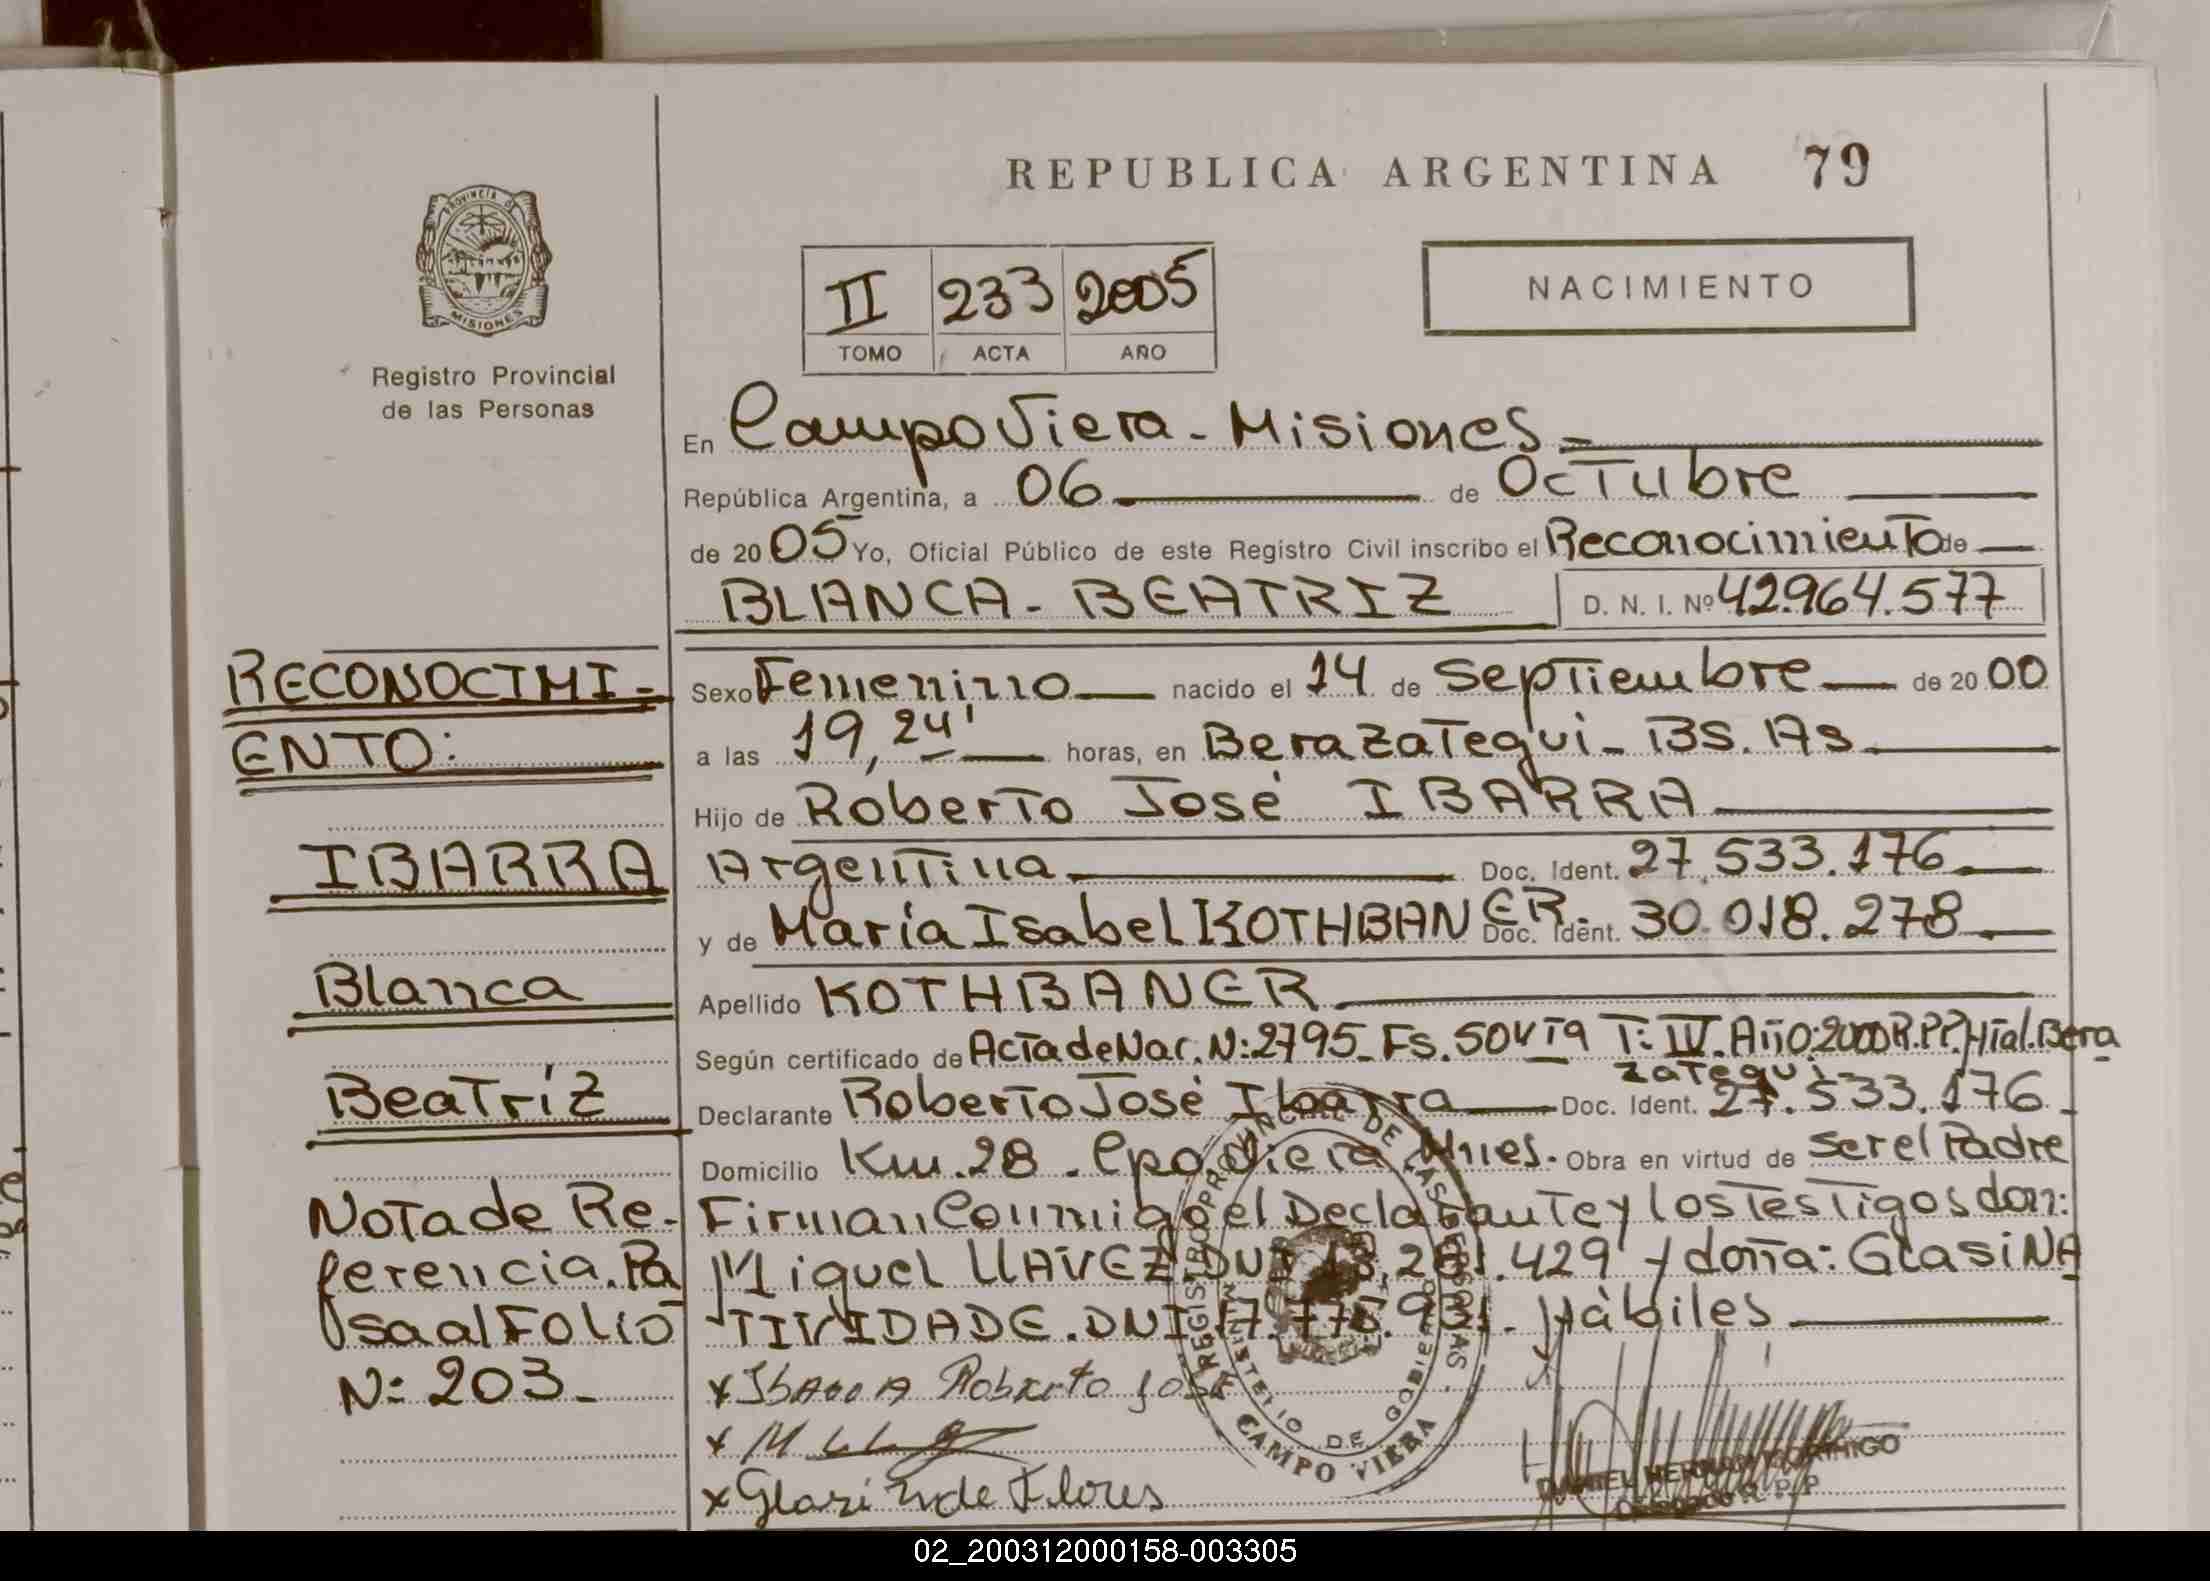 REPUBLICA ARGENTINA 79
PROVINCIA DE
MISIONES
Registro Provincial
de las Personas
II 233 2005
TOMO ACTA AÑO
NACIMIENTO
En Campo Viera - Misiones =
República Argentina, a 06 de Octubre
de 2005 Yo, Oficial Público de este Registro Civil inscribo el Reconocimiento de
BLANCA - BEATRIZ D. N. I. Nº 42.964.577
Sexo Femenino nacido el 14 de Septiembre de 2000
a las 19,24' horas, en Berazategui - BS. As.
Hijo de Roberto José IBARRA
Argentina Doc. Ident. 27.533.176
y de María Isabel KOTHBANER. Doc. Ident. 30.018.278
Apellido KOTHBANER
Según certificado de Acta de Nac. N: 2795. Fs. 50 VTA T: IV. Año: 2000 R.P.P. Htal. Bera
zategui
Declarante Roberto José Ibarra Doc. Ident. 27.533.176
Domicilio Km. 28 . Cpo. Viera Mnes. Obra en virtud de ser el Padre
Firman Conmigo el Declarante y los Testigos don:
Miguel LLAVEZ. DNI y doña: GLASI NA
TIVIDADE. DNI Hábiles
x Ibarra Roberto José
x
x Glasi Flores
RECONOCIMI-
ENTO:
IBARRA
Blanca
Beatríz
Nota de Re-
ferencia. Pa
sa al Folio
N: 203-
REGISTRO PROVINCIAL DE LAS PERSONAS
MINISTERIO DE GOBIERNO
CAMPO VIERA
02_200312000158-003305